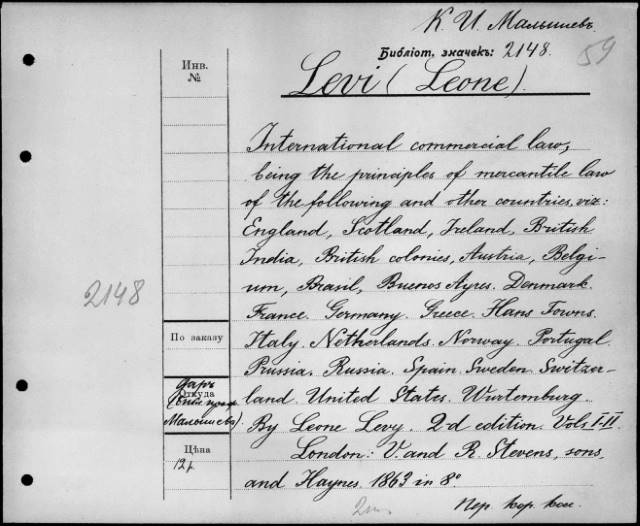 К. И. Малышевъ.
Библіот. значекъ: 2148.
59
Levi (Leone).
Инв.
№
International commercial law,
being the principles of mercantile law
of the following and other countries, viz:
England, Scotland, Ireland, British
India, British colonies, Austria, Belgi-
um, Brasil, Buenos Ayres. Denmark.
France. Germany. Greece. Hans Towns.
Italy. Netherlands. Norway. Portugal.
Prussia. Russia. Spain. Sweden. Switzer-
land. United States. Wurtemburg.
By Leone Levy. 2-d edition. Vols I-II.
London: V. and R. Stevens, sons,
and Haynes. 1863 in 8°
2148
По заказу
Даръ
Откуда
Малышева).
Цѣна
12 р.
Пер. кор. кож.